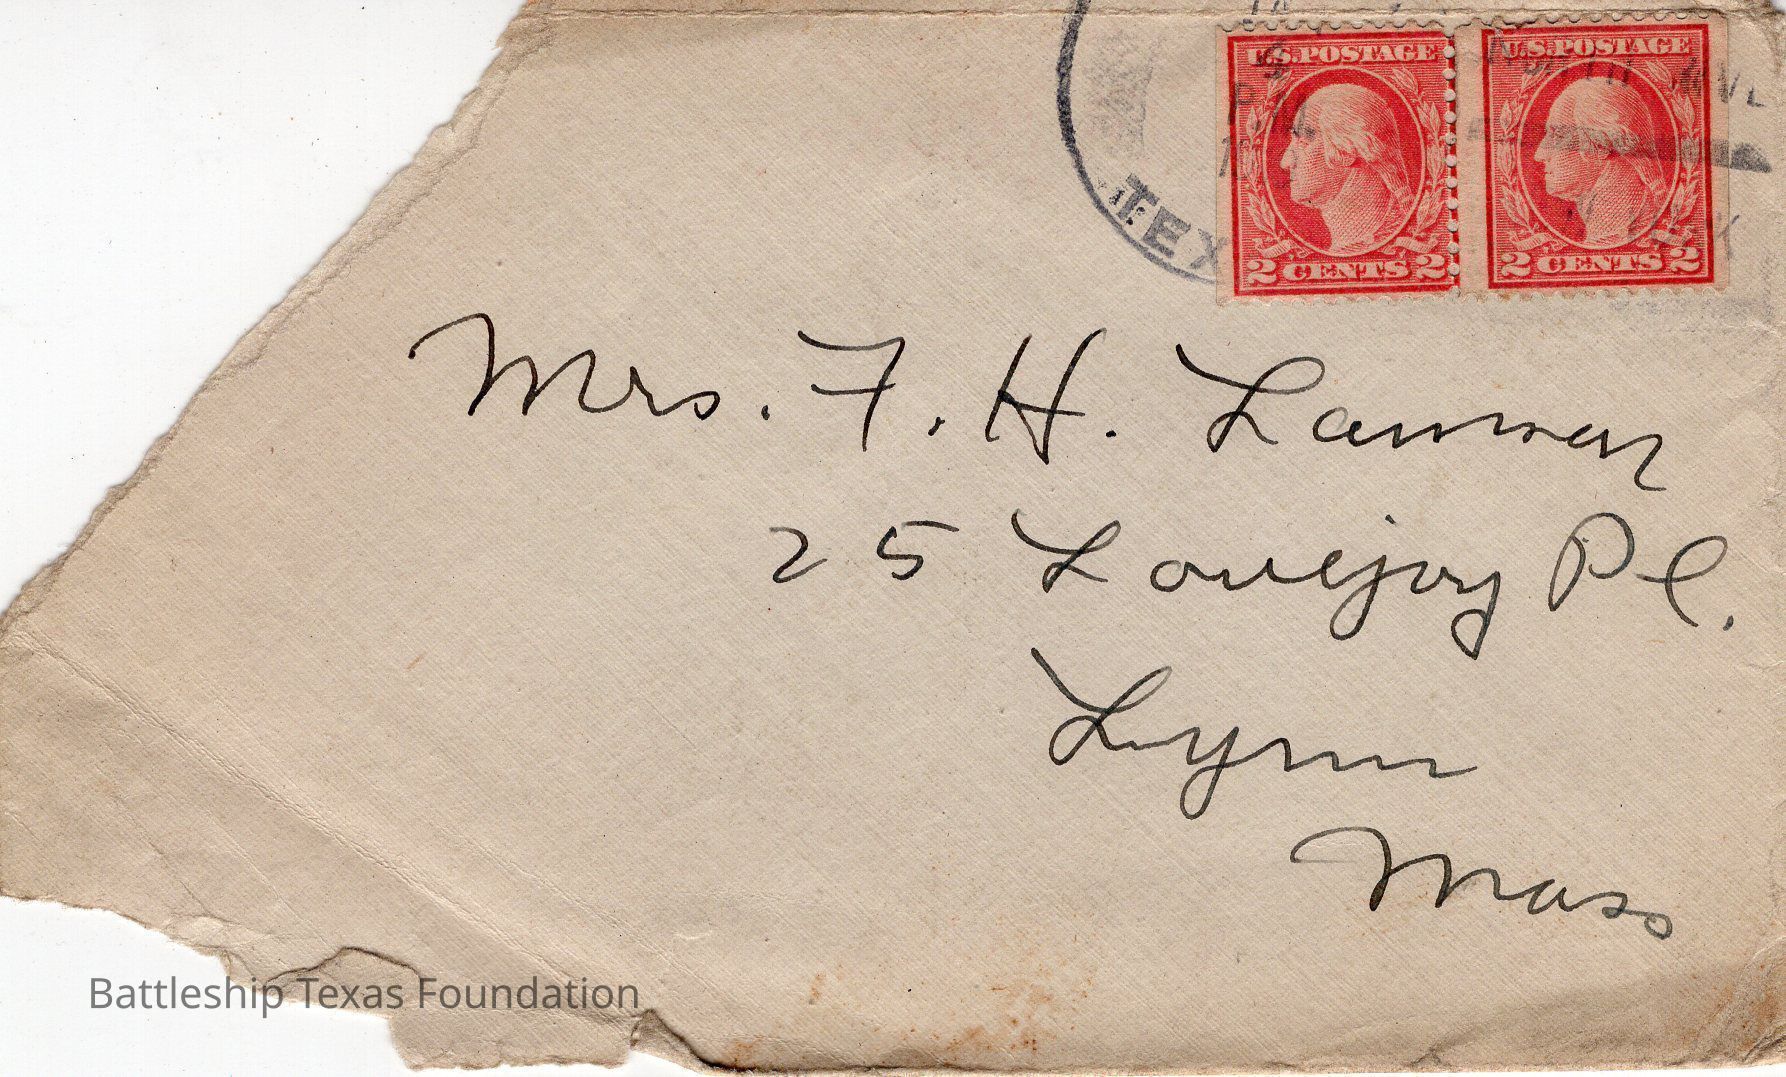 U.S.POSTAGE U.S.POSTAGE
TEX
2 CENTS 2 2 CENTS 2
Mrs. F. H. Lamson
25 Lovejoy Pl.
Lynn
Mass
Battleship Texas Foundation